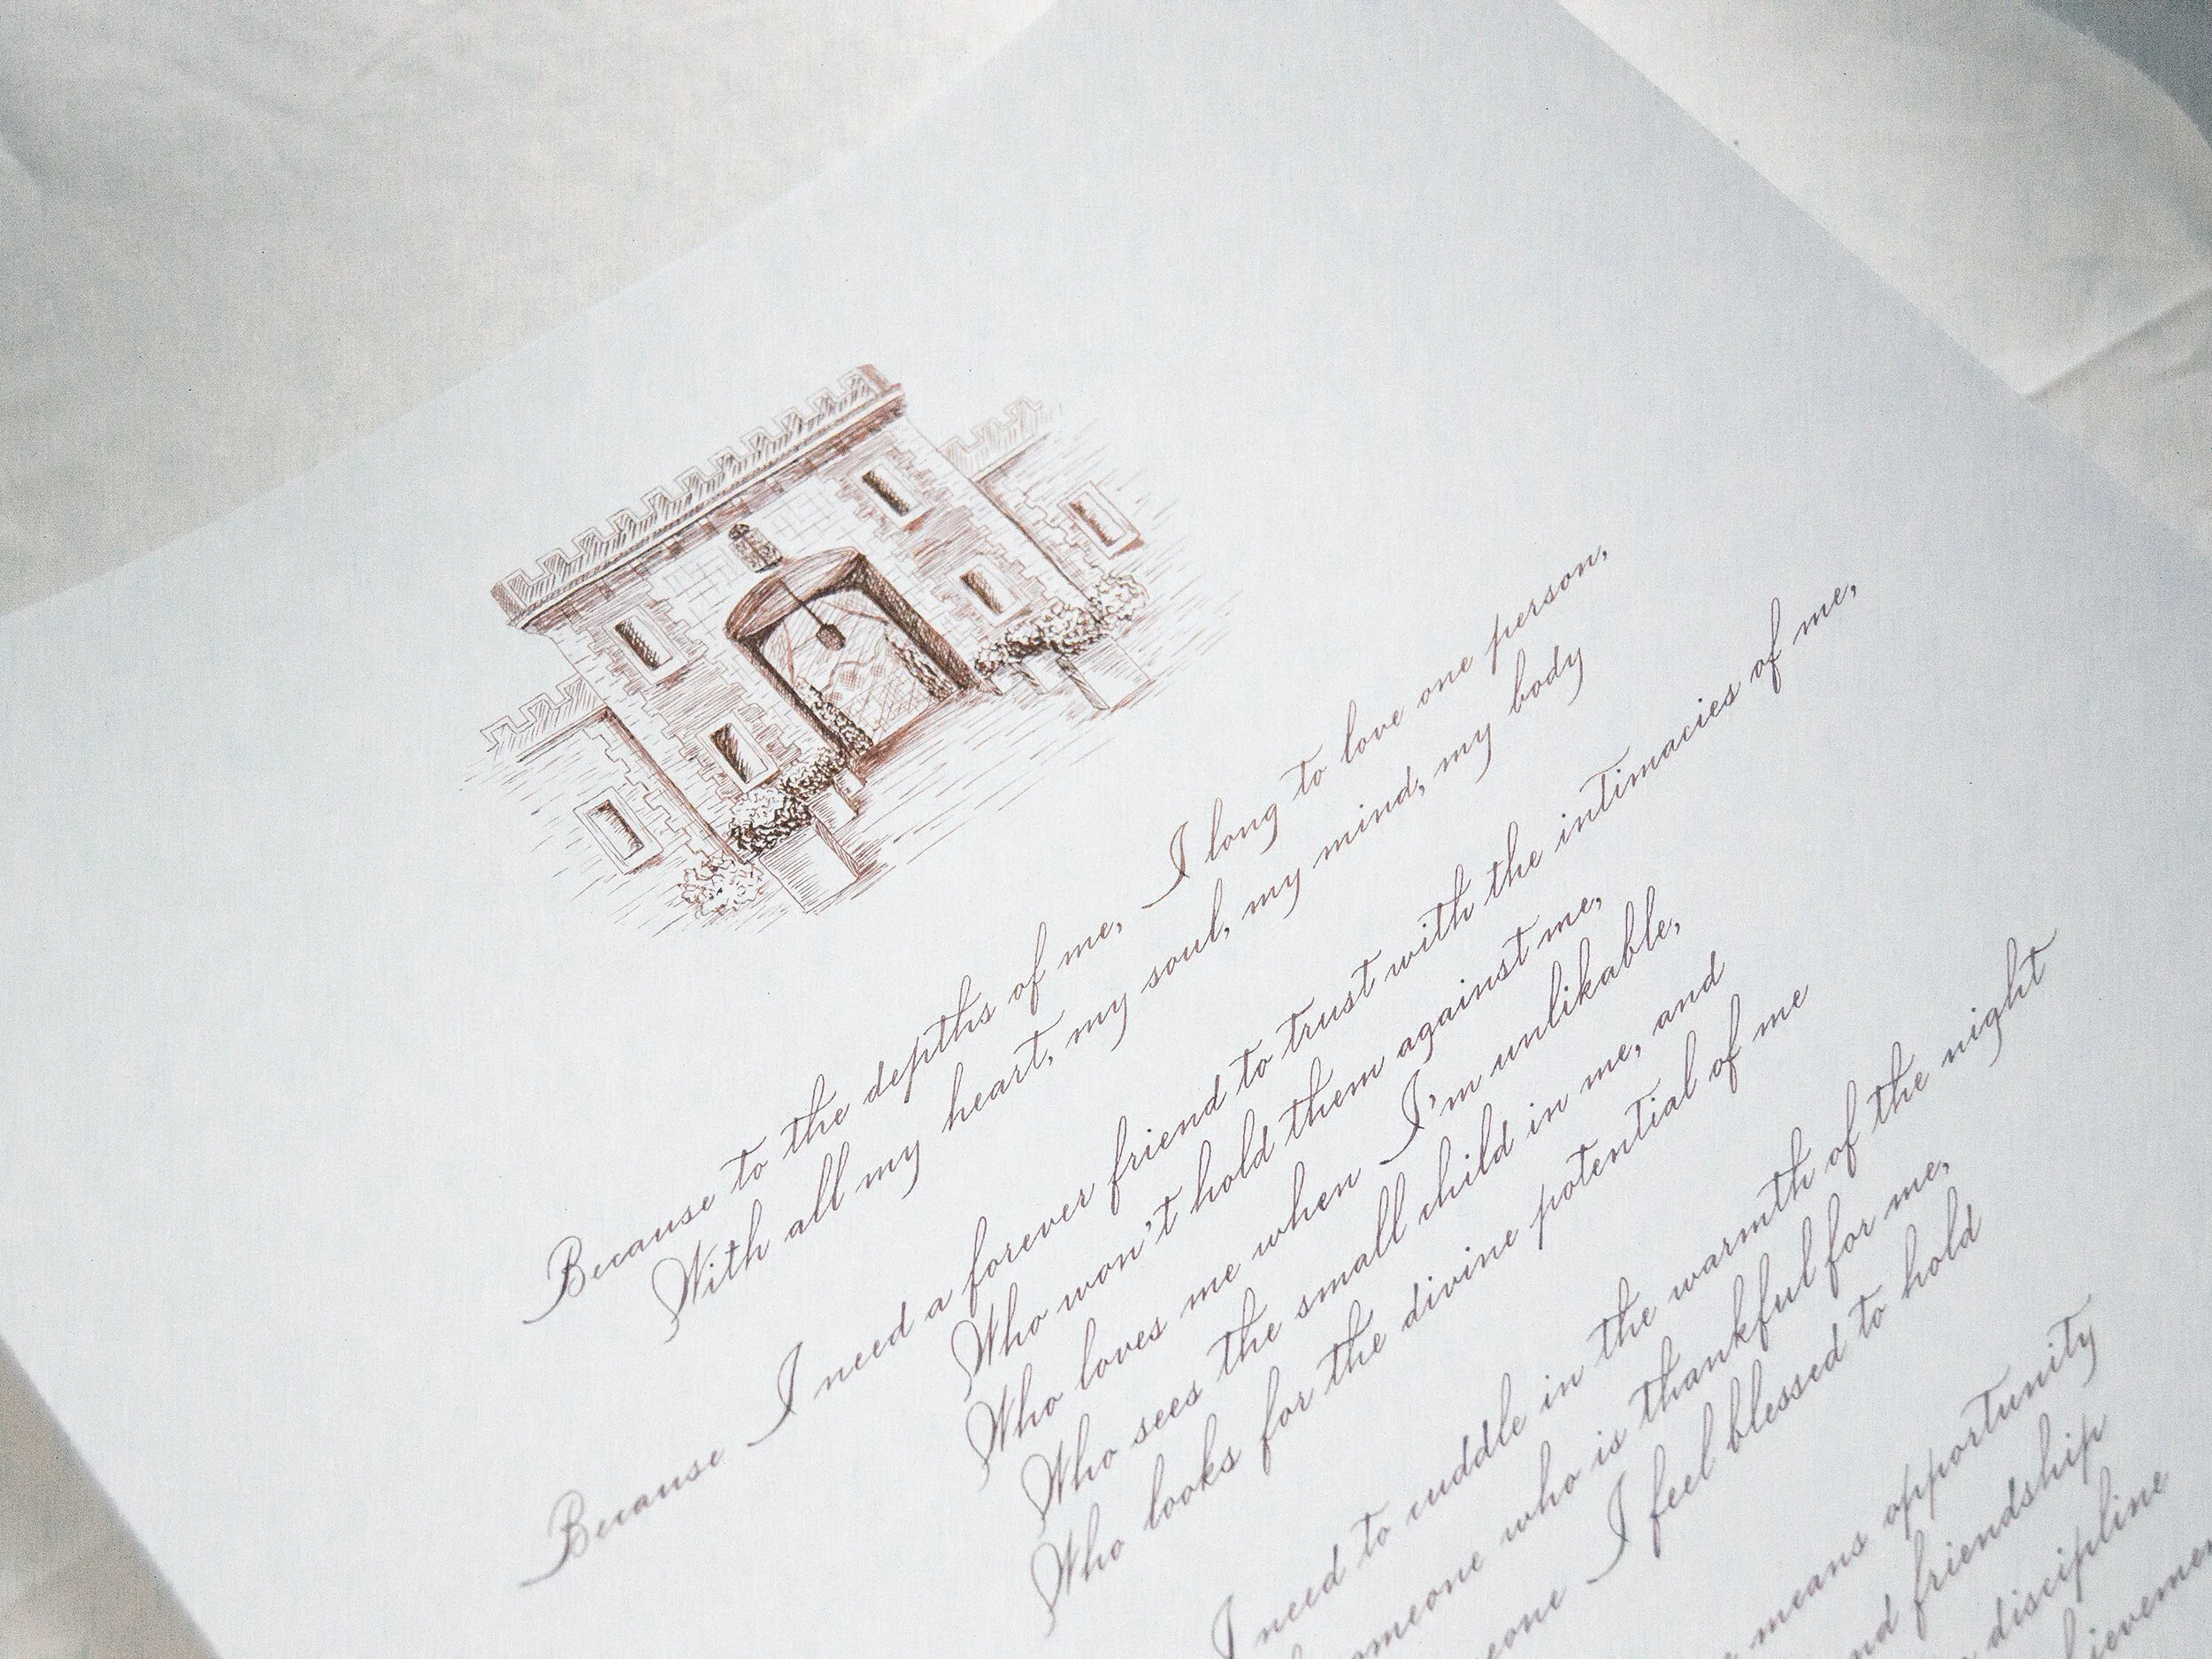 Because to the depths of me, I long to love one person,
With all my heart, my soul, my mind, my body
Because I need a forever friend to trust with the intimacies of me,
Who won't hold them against me,
Who loves me when I'm unlikable,
Who sees the small child in me, and
Who looks for the divine potential of me
I need to cuddle in the warmth of the night
someone who is thankful for me,
I feel blessed to hold
means opportunity
friendship
discipline